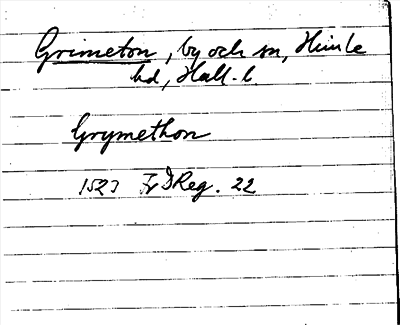 Grimeton, by och sn, Himle
hd, Hall. l.
Grymethon
1523 Fr I Reg. 22